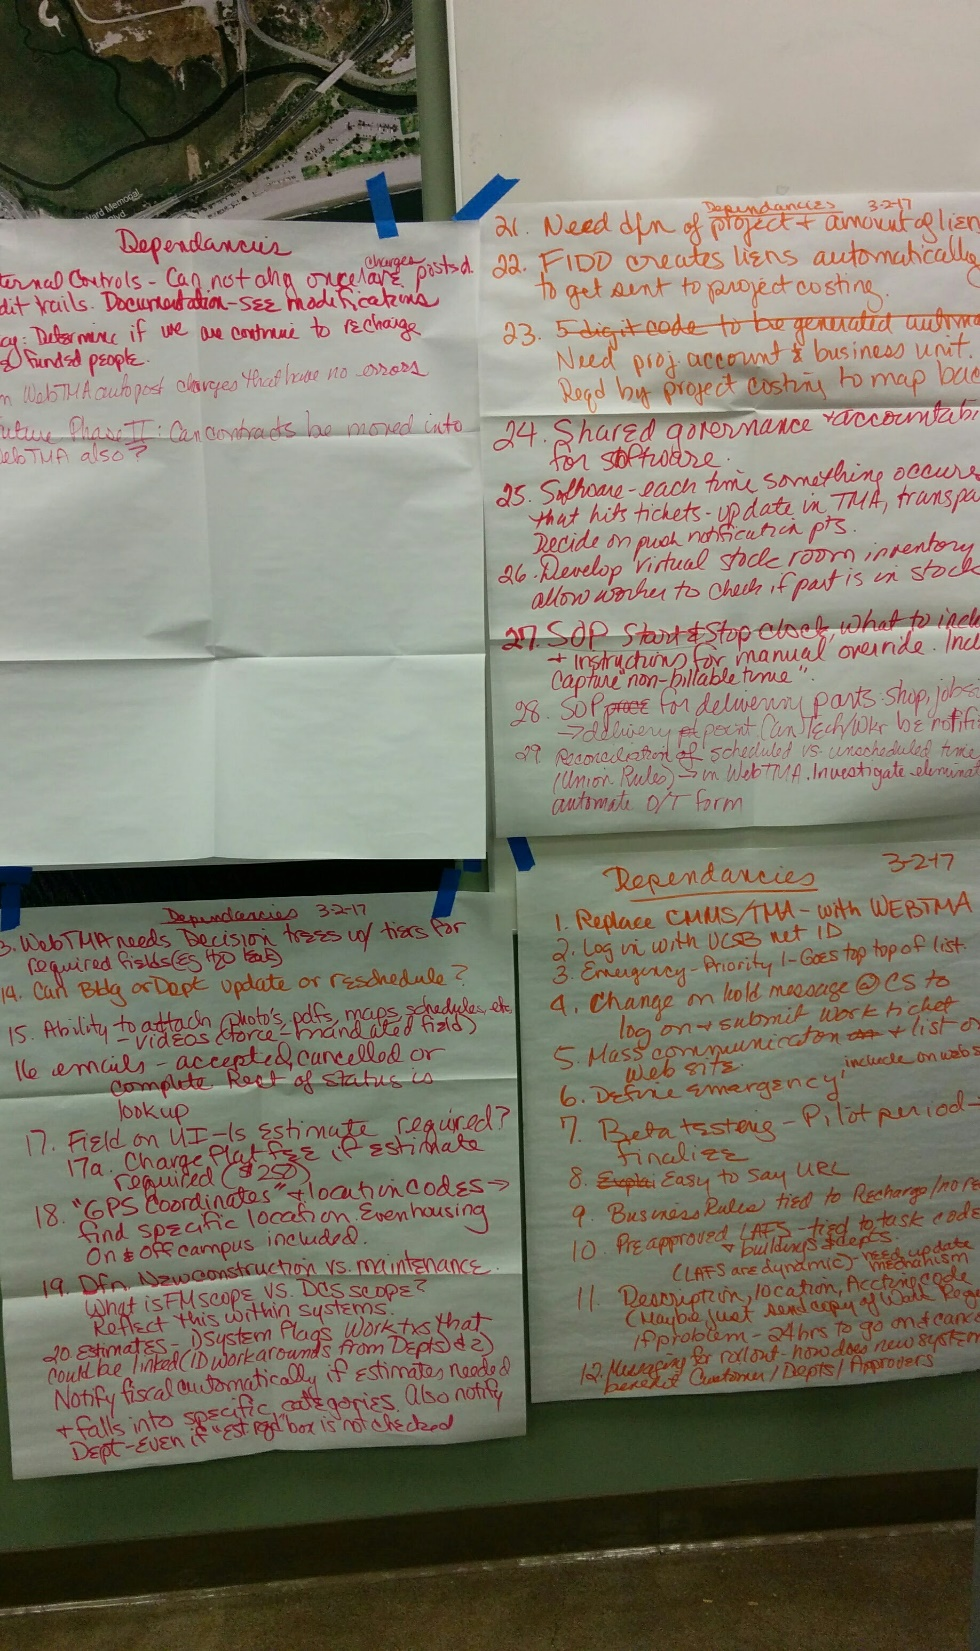 Ward Memorial
Blvd
Dependancies
ternal Controls - Can not chg once charges are posted.
dit trails. Documentation - see modifications
ay: Determine if we are continue to recharge
funded people.
n WebTMA autopost charges that have no errors
uture Phase II: Can contracts be moved into
WebTMA also?
Dependancies 3-2-17
21. Need dfn of project + amount of lien
22. FIDO creates liens automatically
to get sent to project costing.
23. 5 digit code to be generated automa
Need proj. account & business unit.
Reqd by project costing to map bac
24. Shared governance + accountab
for software.
25. Software - each time something occurs
that hits tickets - update in TMA, transpa
Decide on push notification pts.
26. Develop virtual stock room inventory
allow worker to check if part is in stock
27. SOP Start & Stop clock, what to incl
+ instructions for manual override. Incl
Capture "non-billable time".
28. SOP for delivering parts shop, jobsi
→ delivery point. Can Tech/Wkr be notifi
29 Reconciliation of scheduled vs. unscheduled time
(Union Rules) → in WebTMA. Investigate eliminat
automate O/T form
Dependancies 3-2-17
3. WebTMA needs Decision trees w/ tiers for
required fields (eg H2O leak)
14. Can Bldg or Dept update or reschedule?
15. Ability to attach photo's, pdfs, maps, schedules, etc.
- videos (force - mandated field)
16 emails - accepted, cancelled or
complete Rect of status is
lookup
17. Field on UI - Is estimate required?
17a. Charge flat fee if estimate
required ($250)
18. "GPS Coordinates" + location codes →
find specific location. Even housing
On & off campus included.
19. Dfn. New construction vs. maintenance.
What is FM scope vs. DCS scope?
Reflect this within systems.
20. Estimates - 1) System Flags Work txs that
could be linked (ID workarounds from Depts) & 2)
Notify fiscal automatically if estimates needed
+ falls into specific categories. Also notify
Dept - Even if "est reqd" box is not checked
Dependancies 3-2-17
1. Replace CMMS/TMA - with WEBTMA
2. Log in with UCSB net ID
3. Emergency - Priority 1 - Goes top top of list.
4. Change on hold message @ CS to
log on + submit work ticket
5. Mass communication + list on
web site.
6. Define emergency, include on webs
7. Beta testing - Pilot period -
finalize
8. Explai Easy to say URL
9. Business Rules tied to Recharge/no re
10. Pre approved LAFS - tied to task code
+ buildings & depts.
(LAFS are dynamic) - need update
mechanism
11. Description, location, Acctng code
(Maybe just send copy of Work Requ
If problem - 24 hrs to go on + cance
12. Messaging for rollout - how does new system
benefit Customer/Depts/Approvers